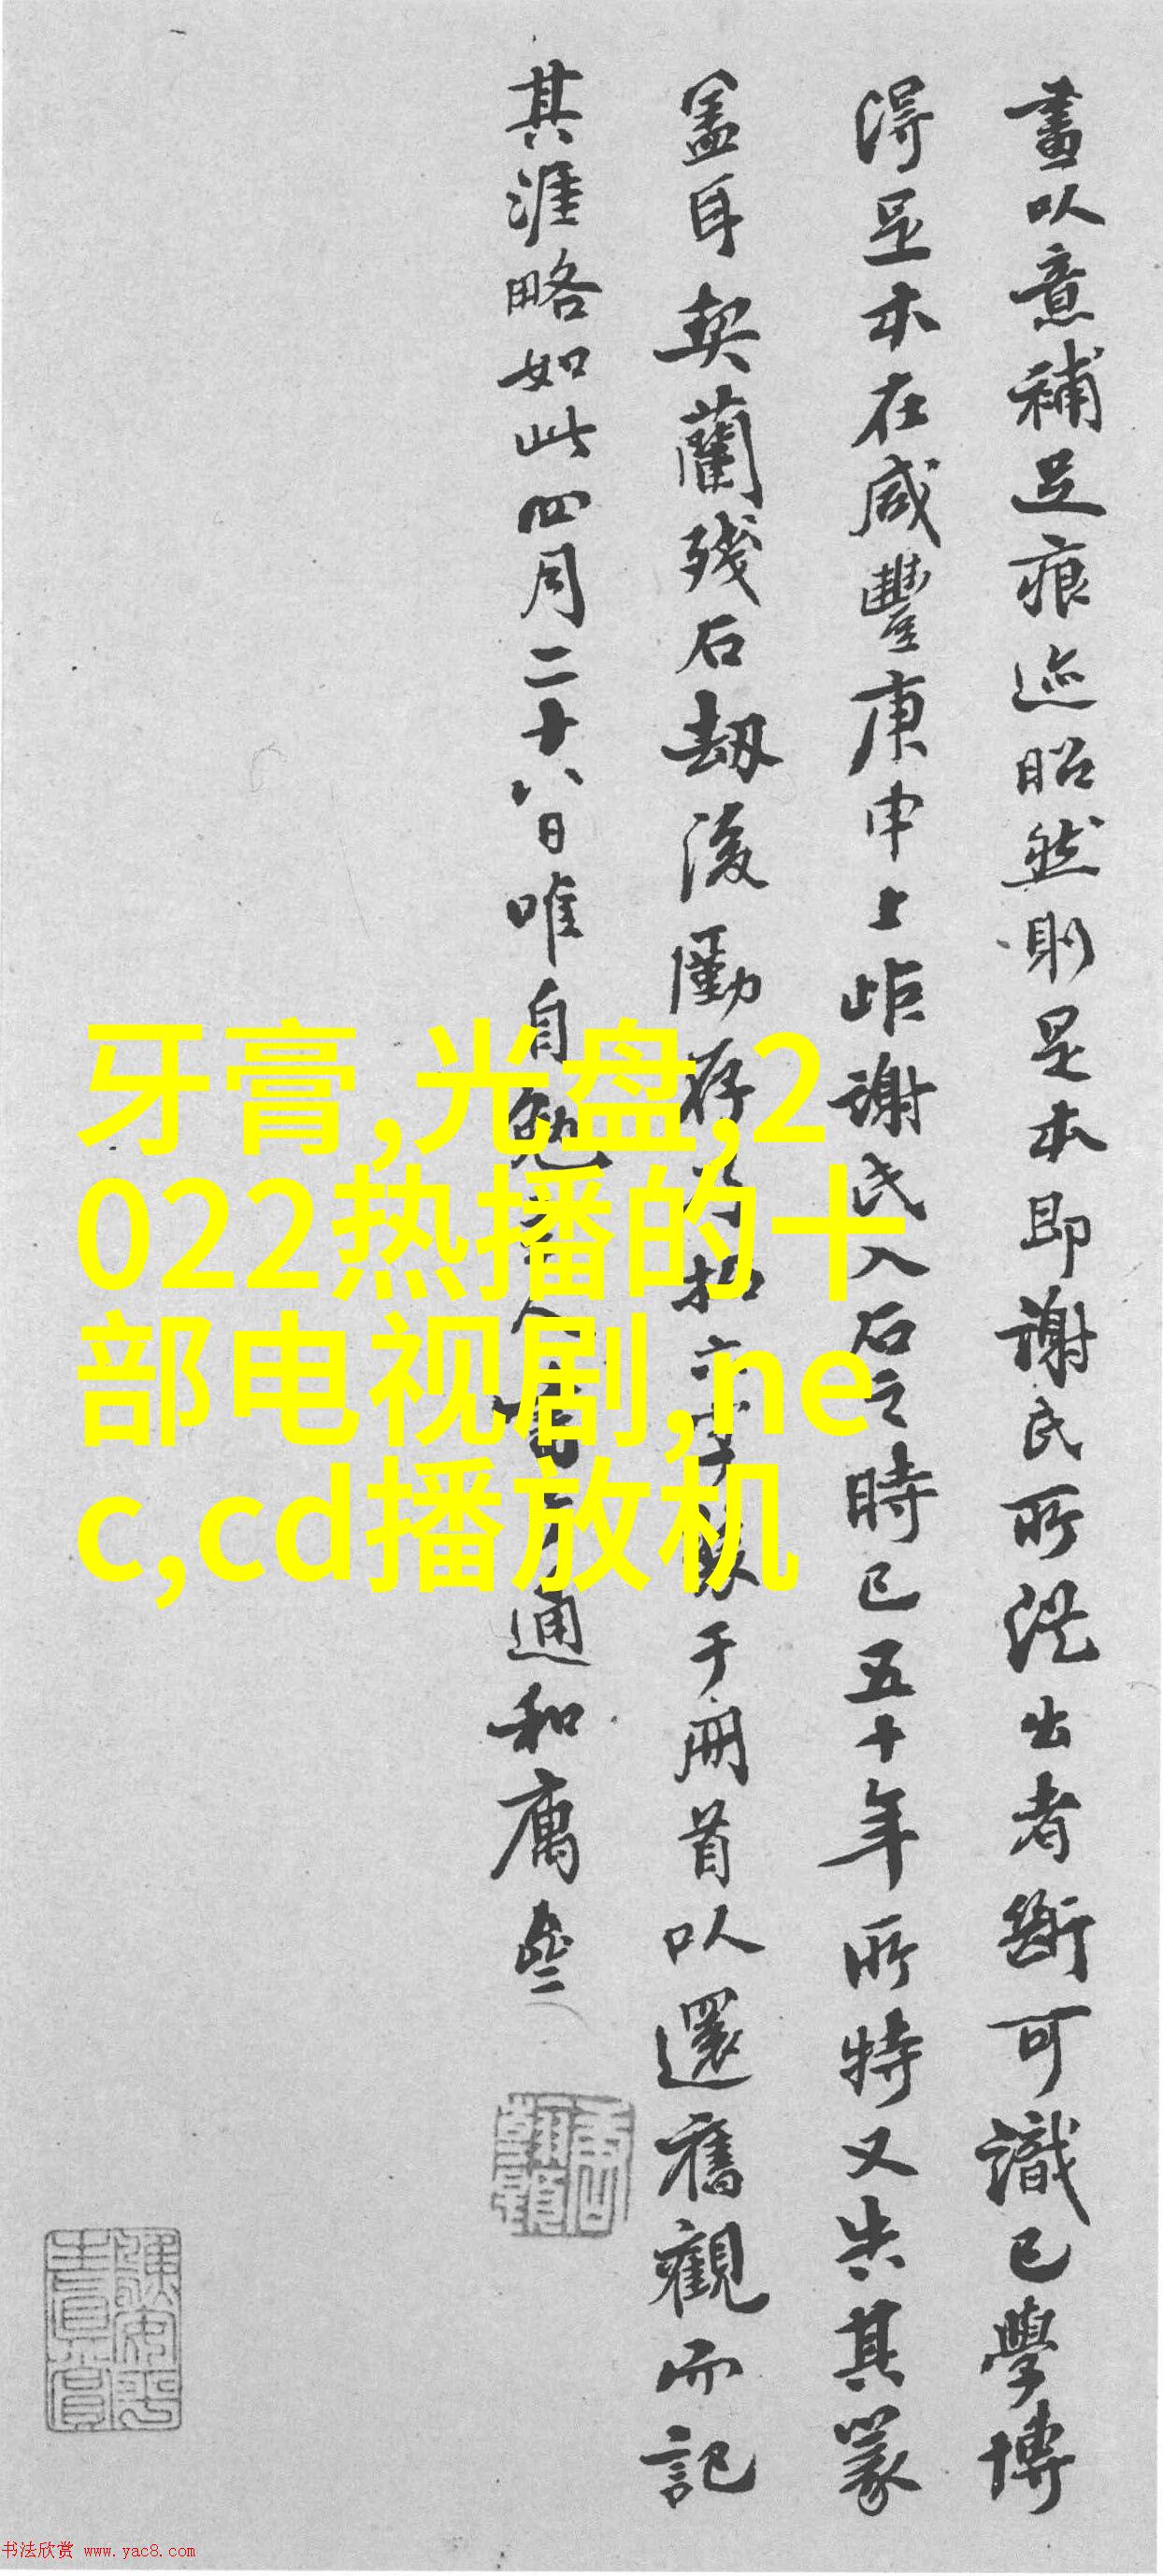 畫以意補足痕迹昭然則是本即謝氏所從出者斷可識已學博
得足本在咸豐庚申上距謝氏入石之時已五十年所特又失其篆
蓋耳契蘭殘石劫後勵存
于冊首以還舊觀而記
其涯略如此四月二十八日唯自勉
通和庽
牙膏,光盘,2
022热播的十
部电视剧,ne
c,cd播放机
书法欣赏 www.yac8.com